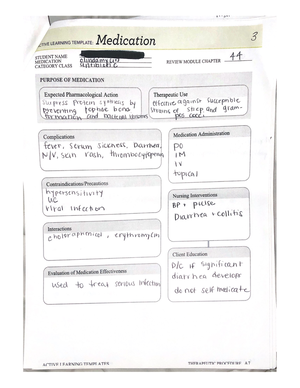 ACTIVE LEARNING TEMPLATE: Medication
3
STUDENT NAME
MEDICATION clindamycin
REVIEW MODULE CHAPTER 44
CATEGORY CLASS
PURPOSE OF MEDICATION
Expected Pharmacological Action
suppress protein synthesis by
preventing peptide bond
formation and bacterial
Therapeutic Use
effective against susceptible
strains of strep and gram-
pos cocci
Complications
fever, serum sickness, Diarrhea,
N/V, skin rash,
Medication Administration
PO
IM
IV
topical
Contraindications/Precautions
hypersensitivity
UC
viral infection
Nursing Interventions
BP + pulse
Diarrhea + colitis
Interactions
erythromycin
Client Education
D/C if significant
diarrhea develops
do not self medicate
Evaluation of Medication Effectiveness
used to treat serious infection
ACTIVE LEARNING TEMPLATES
THERAPEUTIC PROCEDURE A7